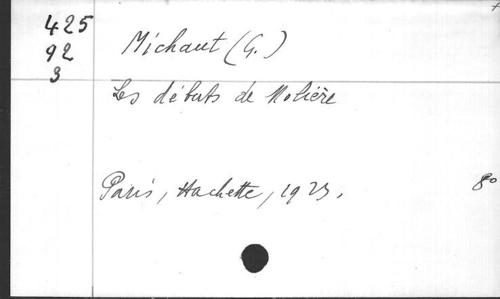 425
92
3
Michaut (G.)
Les débuts de Molière
Paris, Hachette, 1923.
8o